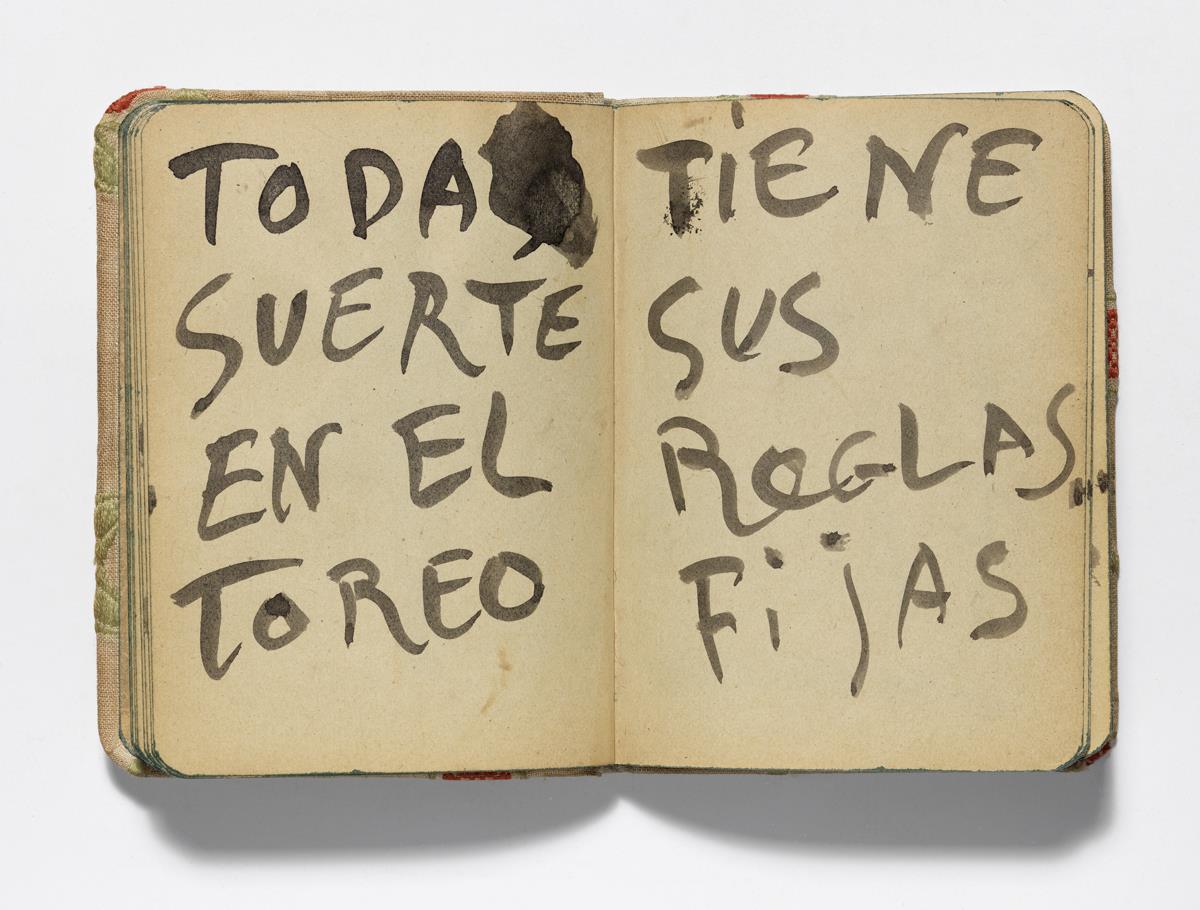 TODA
SUERTE
EN EL
TOREO
TiENE
SUS
REGLAS
FijAS